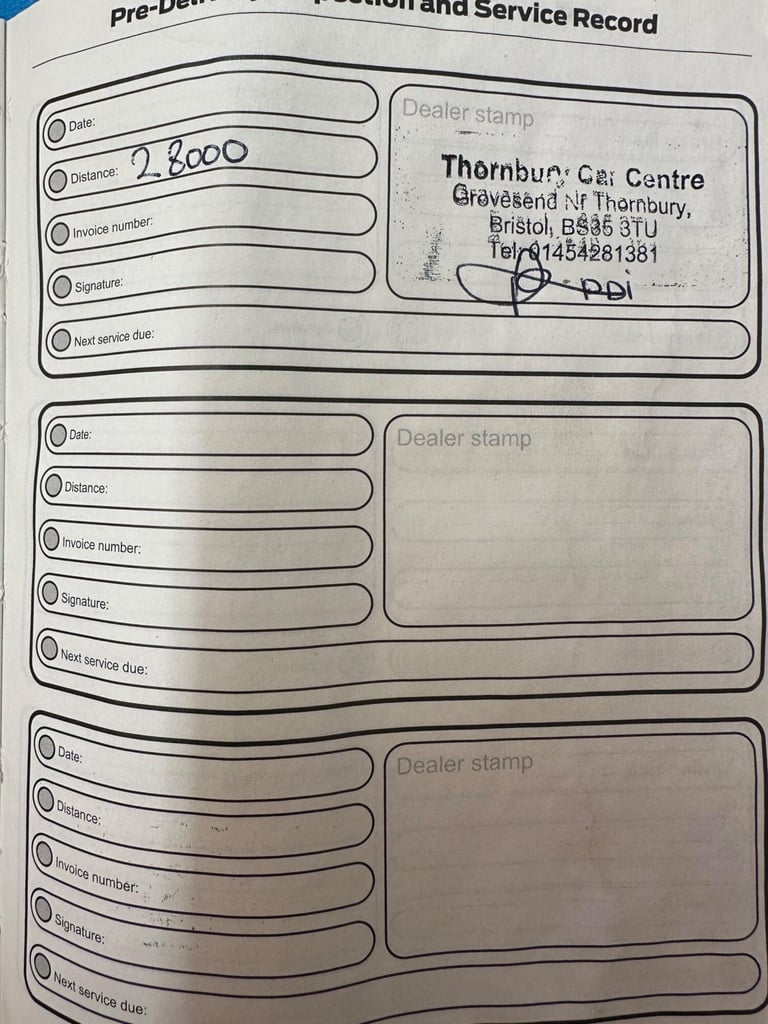 Pre-Delivery Inspection and Service Record
Date:
Distance: 28000
Invoice number:
Signature:
Next service due:
Dealer stamp
Thornbury Car Centre
Gravesend Nr Thornbury,
Bristol, BS35 3TU
Tel: 01454281381
PDI
Date:
Distance:
Invoice number:
Signature:
Next service due:
Dealer stamp
Date:
Distance:
Invoice number:
Signature:
Next service due:
Dealer stamp